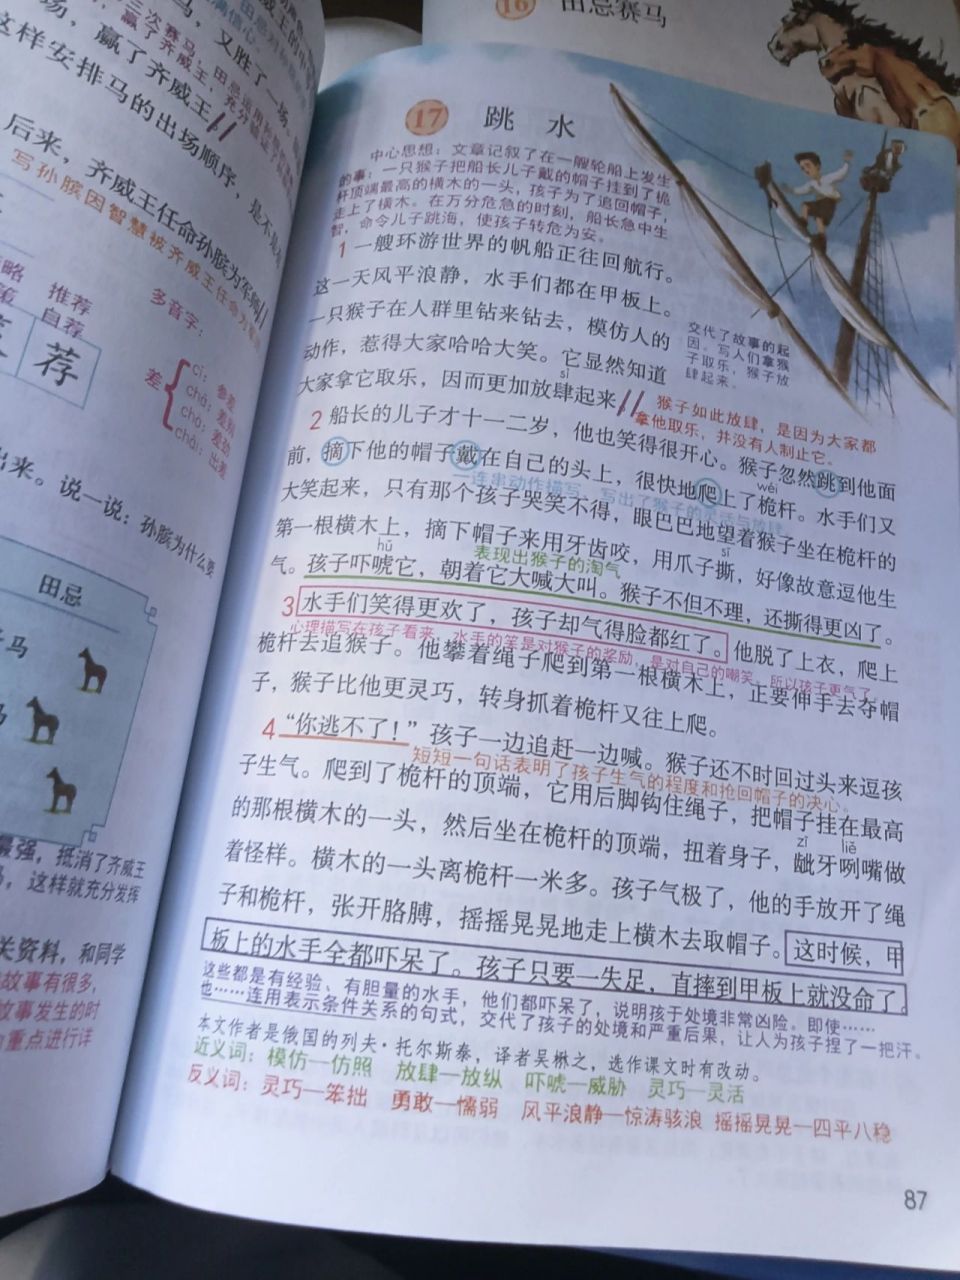 16 田忌赛马
马，又胜了一场
场，赢了齐威王
这样安排马的出场顺序，是不是
后来，齐威王任命孙膑为军师
写孙膑因智慧被齐威王任命为军师
推荐
自荐
荐
多音字：
差
cī：参差
chā：差别
chà：差劲
chāi：出差
出来。说一说：孙膑为什么要
田忌
最强，抵消了齐威王
马，这样就充分发挥
关资料，和同学
故事有很多，
故事发生的时
重点进行详
17 跳水
中心思想：文章记叙了在一艘轮船上发生
的事：一只猴子把船长儿子戴的帽子挂到了桅
杆顶端最高的横木的一头，孩子为了追回帽子，
走上了横木。在万分危急的时刻，船长急中生
智，命令儿子跳海，使孩子转危为安。
1 一艘环游世界的帆船正往回航行。
这一天风平浪静，水手们都在甲板上。
一只猴子在人群里钻来钻去，模仿人的
动作，惹得大家哈哈大笑。它显然知道
sì
大家拿它取乐，因而更加放肆起来。
交代了故事的起
因。写人们拿猴
子取乐，猴子放
肆起来。
猴子如此放肆，是因为大家都
拿他取乐，并没有人制止它。
2 船长的儿子才十一二岁，他也笑得很开心。猴子忽然跳到他面
wéi
前，摘下他的帽子戴在自己的头上，很快地爬上了桅杆。水手们又
一连串动作描写，写出了猴子的灵活与放肆。
大笑起来，只有那个孩子哭笑不得，眼巴巴地望着猴子坐在桅杆的
sī
第一根横木上，摘下帽子来用牙齿咬，用爪子撕，好像故意逗他生
hǔ
表现出猴子的淘气
气。孩子吓唬它，朝着它大喊大叫。猴子不但不理，还撕得更凶了。
3 水手们笑得更欢了，孩子却气得脸都红了。他脱了上衣，爬上
心理描写在孩子看来，水手的笑是对猴子的奖励，是对自己的嘲笑，所以孩子更气了。
桅杆去追猴子。他攀着绳子爬到第一根横木上，正要伸手去夺帽
子，猴子比他更灵巧，转身抓着桅杆又往上爬。
4 “你逃不了！”孩子一边追赶一边喊。猴子还不时回过头来逗孩
短短一句话表明了孩子生气的程度和抢回帽子的决心。
子生气。爬到了桅杆的顶端，它用后脚钩住绳子，把帽子挂在最高
zī liě
的那根横木的一头，然后坐在桅杆的顶端，扭着身子，龇牙咧嘴做
着怪样。横木的一头离桅杆一米多。孩子气极了，他的手放开了绳
子和桅杆，张开胳膊，摇摇晃晃地走上横木去取帽子。这时候，甲
板上的水手全都吓呆了。孩子只要一失足，直摔到甲板上就没命了。
这些都是有经验、有胆量的水手，他们都吓呆了，说明孩子处境非常凶险。即使……
也……连用表示条件关系的句式，交代了孩子的处境和严重后果，让人为孩子捏了一把汗。
本文作者是俄国的列夫·托尔斯泰，译者吴楸之，选作课文时有改动。
近义词：模仿—仿照 放肆—放纵 吓唬—威胁 灵巧—灵活
反义词：灵巧—笨拙 勇敢—懦弱 风平浪静—惊涛骇浪 摇摇晃晃—四平八稳
87